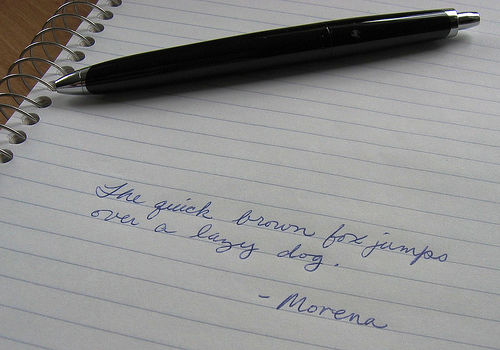 The quick brown fox jumps
over a lazy dog.
- Morena